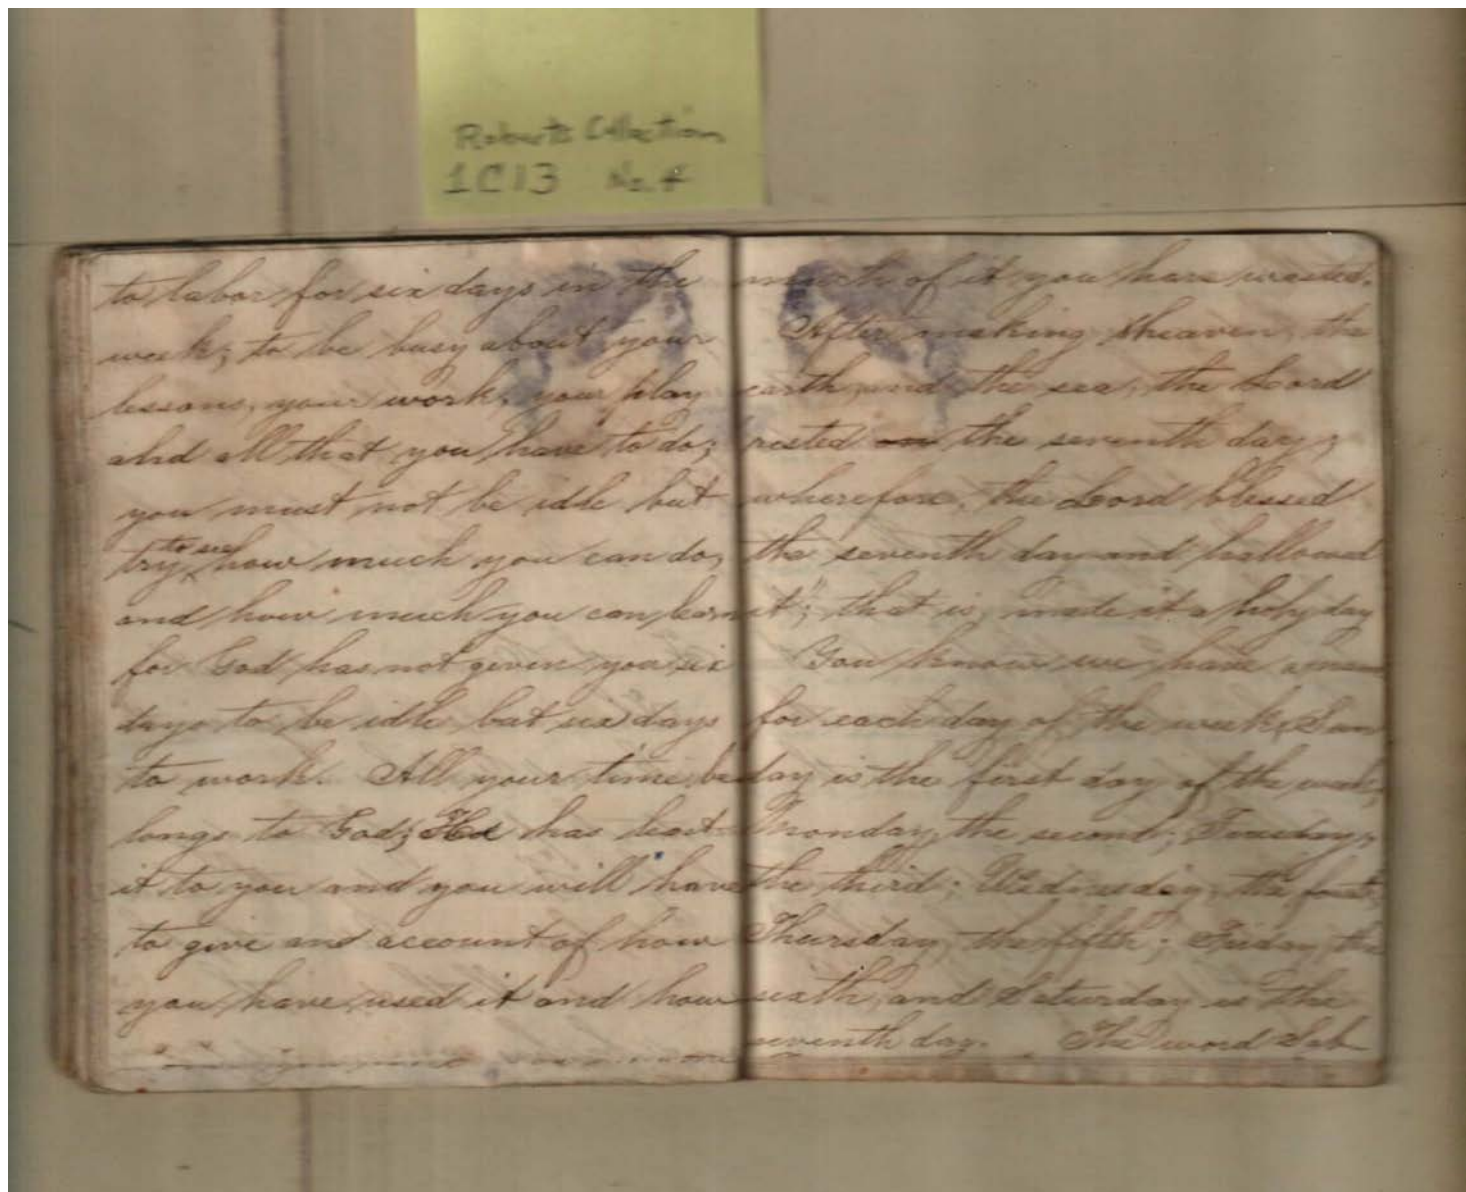 Roberts Collection
1C13 No. 4
to labor for six days in the
week; to be busy about your
lessons, your work, your play
and all that you have to do;
you must not be idle but
try to see how much you can do,
and how much you can learn
for God has not given you six
days to be idle but six days
to work. All your time be
longs to God; He has lent
it to you and you will have
to give and account of how
you have used it and how
much of it you have wasted.
After making heaven, the
earth, and the sea, the Lord
rested on the seventh day;
wherefore, the Lord blessed
the seventh day and hallowed
it"; that is, made it a holy day
You know we have a name
for each day of the week, Sun
day is the first day of the week,
Monday, the second; Tuesday,
the third; Wednesday, the
Thursday, the fifth; Friday, the
sixth, and Saturday is the
seventh day. The word Sab